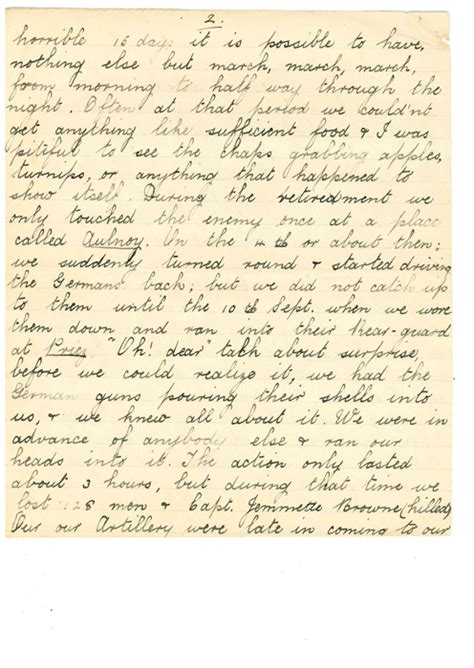 2.
horrible 15 days it is possible to have,
nothing else but march, march, march,
from morning to half way through the
night. Often at that period we could'nt
get anything like sufficient food & I was
pitiful to see the chaps grabbing apples,
turnips, or anything that happened to
show itself. During the retiredment we
only touched the enemy once at a place
called Aulnoy. On the 4th or about then;
we suddenly turned round & started driving
the Germans back; but we did not catch up
to them until the 10th Sept. when we wore
them down and ran into their Rear-guard
at Priez. "Oh! dear" talk about surprise,
before we could realize it, we had the
German guns pouring their shells into
us, & we knew all about it. We were in
advance of anybody else & ran our
heads into it. The action only lasted
about 3 hours, but during that time we
lost 128 men & Capt. Jemmette Browne (killed)
Our our Artillery were late in coming to our